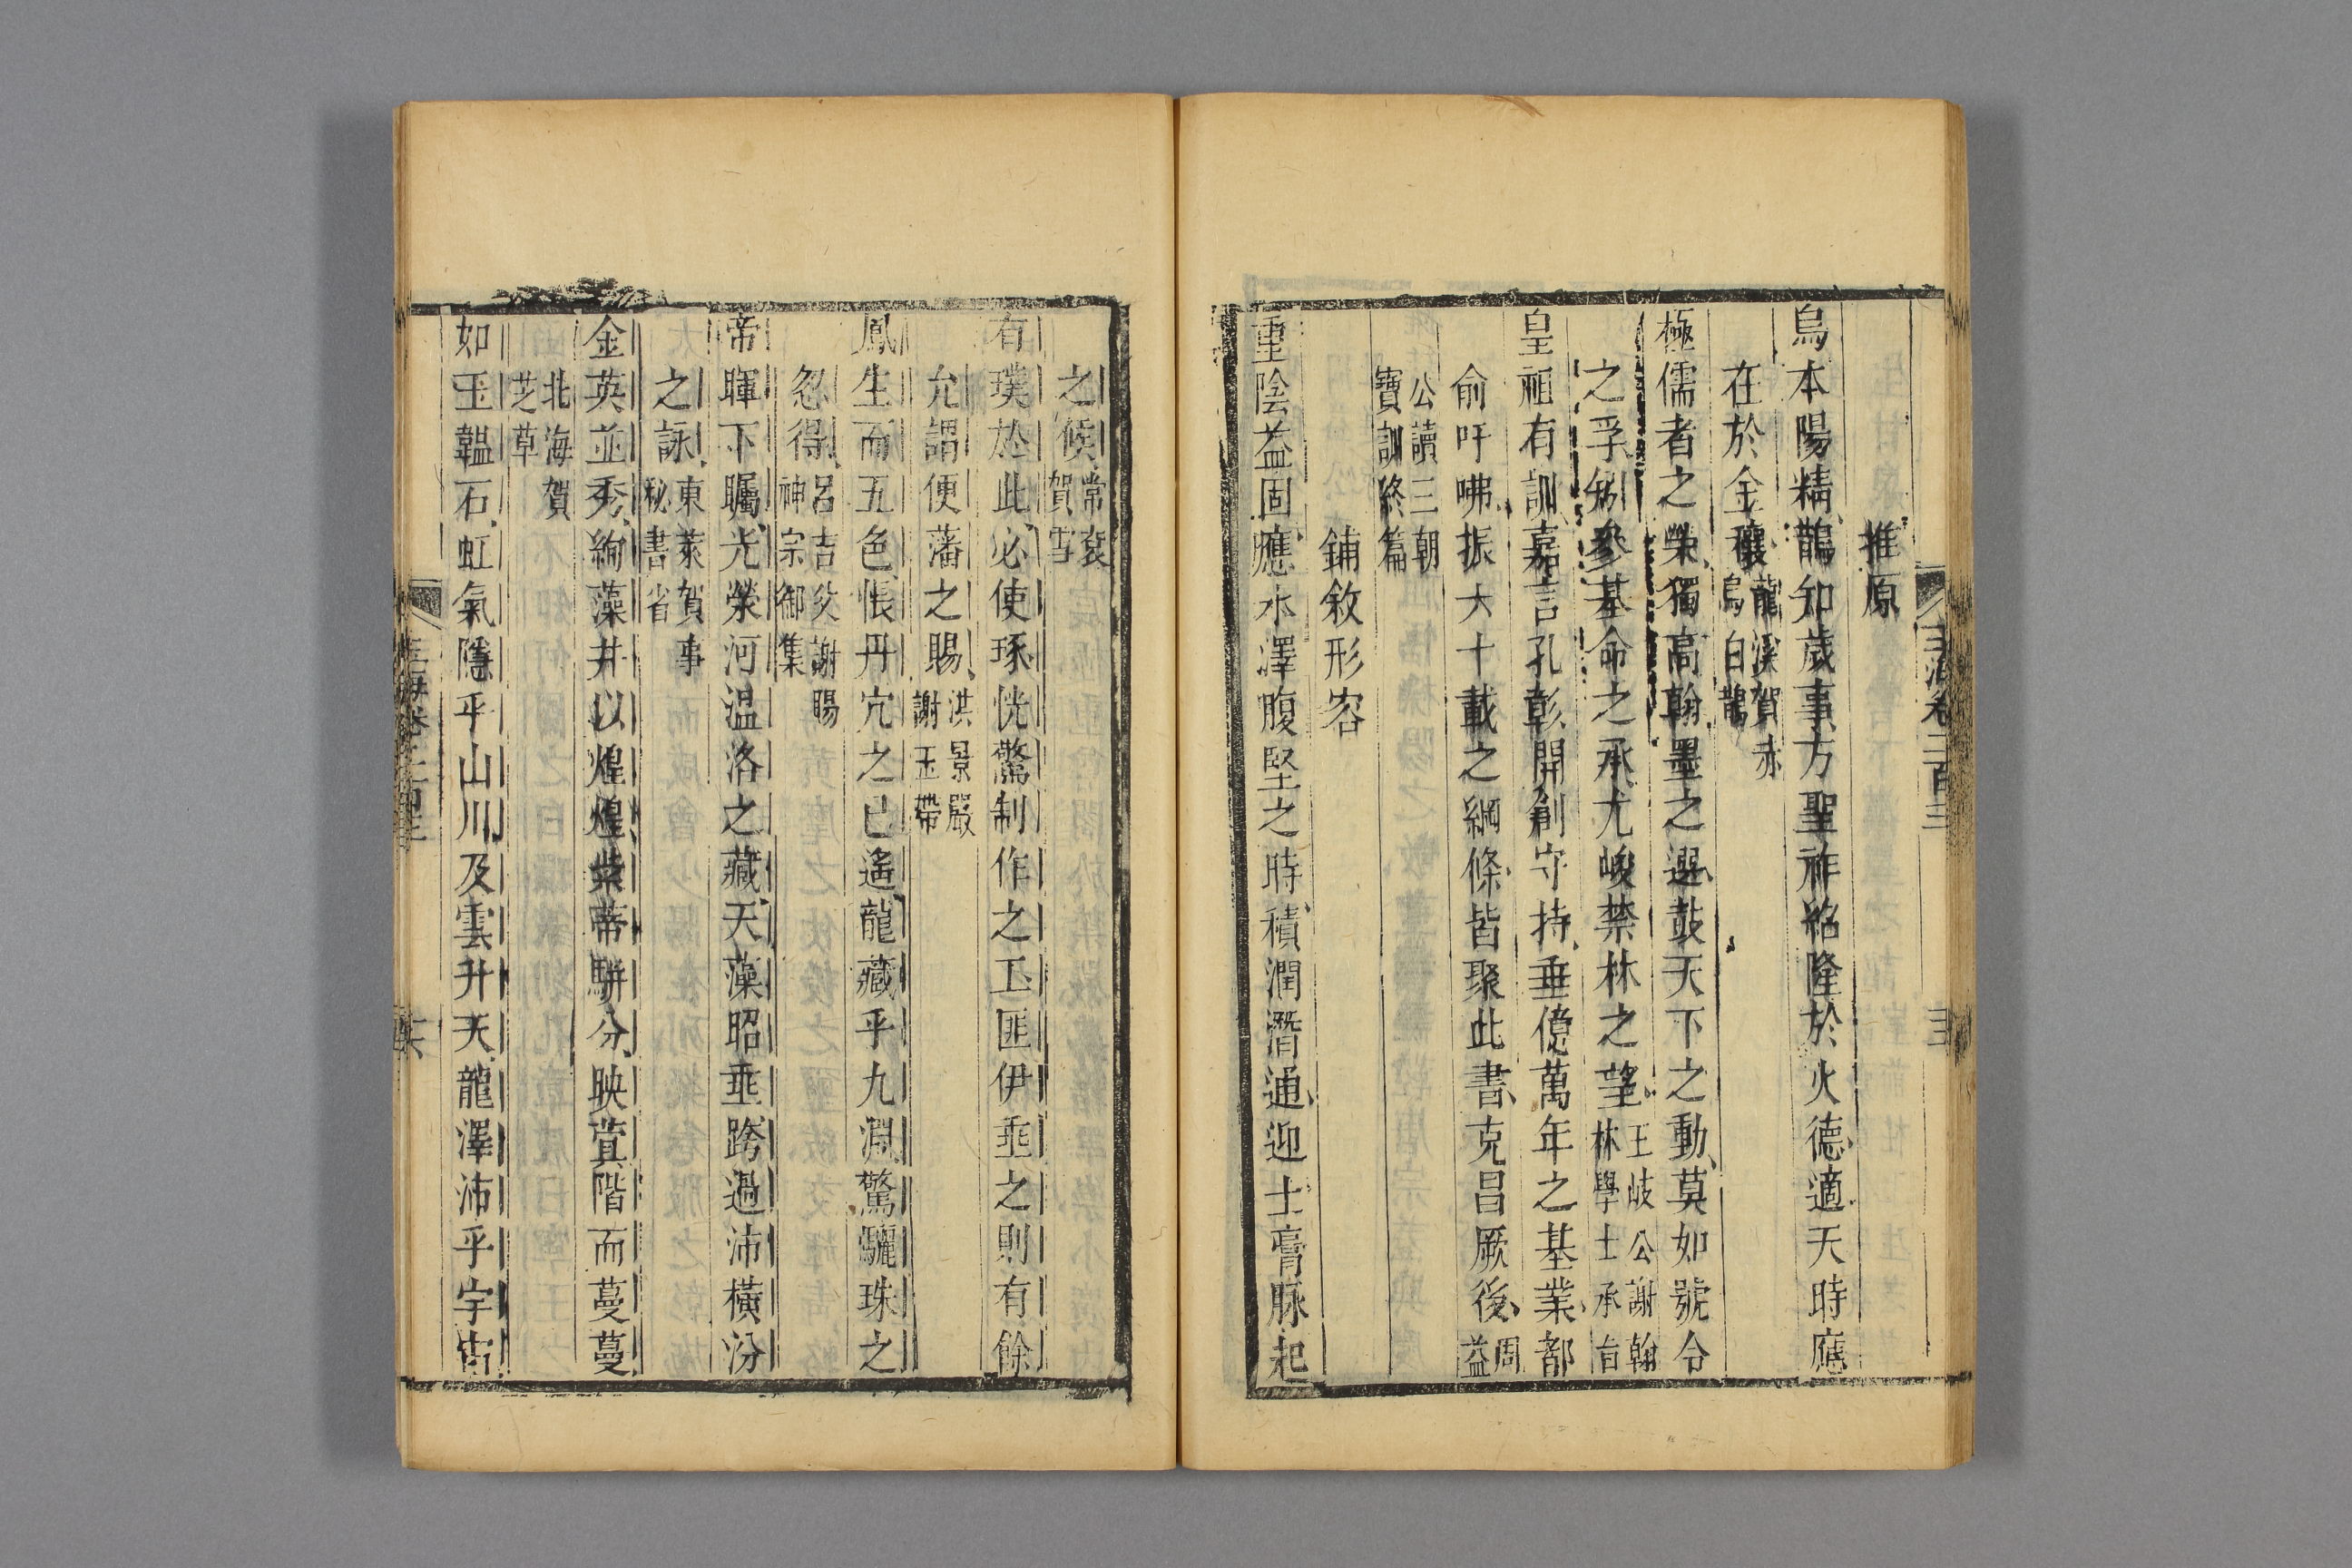 玉海卷二百三
推原
烏本陽精鵲知歲事方聖祚紹隆於火德適天時應
在於金穰龍溪賀赤
烏白鵲
極儒者之榮獨高翰墨之選鼓天下之動莫如號令
之孚矧參基命之承尤峻禁林之望王岐公謝翰
林學士承旨
皇祖有訓嘉言孔彰開創守持垂億萬年之基業都
俞吁咈振大十載之綱條皆聚此書克昌厥後周
益
公讀三朝
寶訓終篇
鋪敘形容
重陰益固應水澤腹堅之時積潤潛通迎土膏脉起
之候常袞
賀雪
有璞於此必使琢恍驚制作之工匪伊垂之則有餘
允謂便藩之賜洪景嚴
謝玉帶
鳳生而五色悵丹穴之已遙龍藏乎九淵驚驪珠之
忽得呂吉父謝賜
神宗御集
帝暉下矚光榮河温洛之藏天藻昭垂跨過沛橫汾
之詠東萊賀事
秘書省
金英並秀絢藻井以煌煌紫蒂駢分映蓂階而蔓蔓
北海賀
芝草
如玉韞石虹氣隱乎山川及雲升天龍澤沛乎宇宙